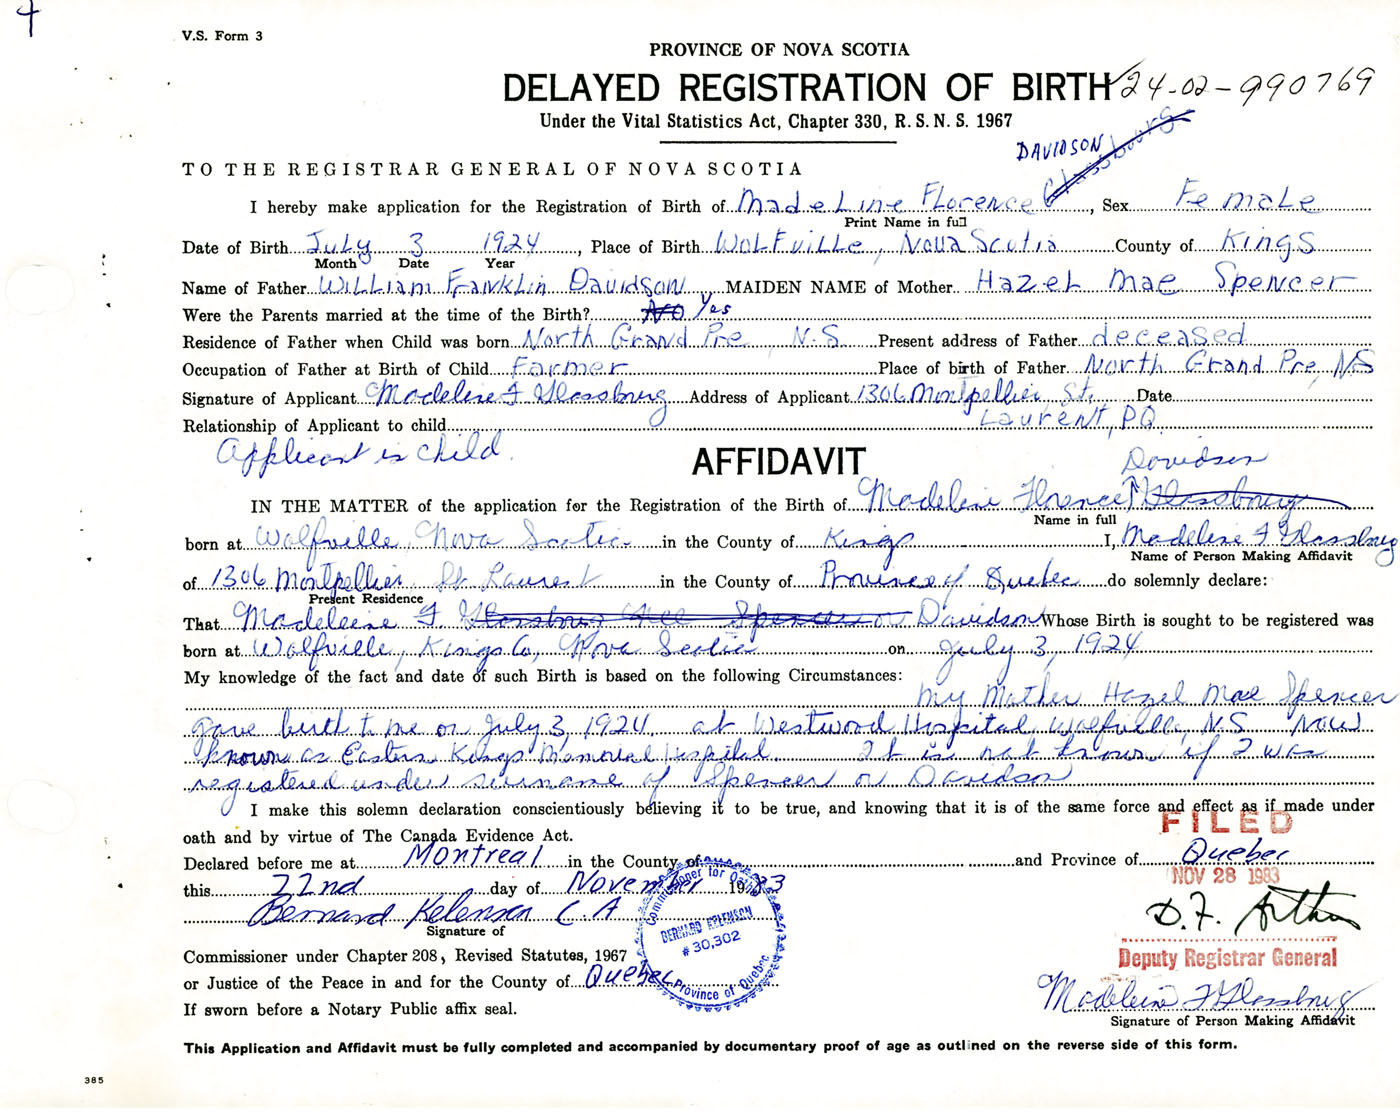 4
V.S. Form 3
PROVINCE OF NOVA SCOTIA
DELAYED REGISTRATION OF BIRTH 24-02-990769
Under the Vital Statistics Act, Chapter 330, R.S.N.S. 1967
DAVIDSON
TO THE REGISTRAR GENERAL OF NOVA SCOTIA
I hereby make application for the Registration of Birth of Madeline Florence Glassbourg, Sex Female
Print Name in full
Date of Birth July 3 1924, Place of Birth Wolfville, Nova Scotia County of Kings
Month Date Year
Name of Father William Franklin Davidson MAIDEN NAME of Mother Hazel Mae Spencer
Were the Parents married at the time of the Birth? No Yes
Residence of Father when Child was born North Grand Pre N.S. Present address of Father deceased
Occupation of Father at Birth of Child Farmer Place of birth of Father North Grand Pre, NS
Signature of Applicant Madeline F Glassburg Address of Applicant 1306 Montpellier St. Date
Relationship of Applicant to child Laurent, PQ.
Applicant is child.
AFFIDAVIT
Davidson
IN THE MATTER of the application for the Registration of the Birth of Madeline Florence Glassburg
Name in full
born at Wolfville, Nova Scotia in the County of Kings I, Madeline F Glassburg
Name of Person Making Affidavit
of 1306 Montpellier St Laurent in the County of Province of Quebec do solemnly declare:
Present Residence
That Madeleine F Glassburg Nee Spencer or Davidson Whose Birth is sought to be registered was
born at Wolfville, Kings Co, Nova Scotia on July 3, 1924
My knowledge of the fact and date of such Birth is based on the following Circumstances:
My Mother Hazel Mae Spencer
gave birth to me on July 3, 1924 at Westwood Hospital Wolfville, N.S. Now
known as Eastern Kings Memorial Hospital. It is not known if I was
registered under surname of Spencer or Davidson
I make this solemn declaration conscientiously believing it to be true, and knowing that it is of the same force and effect as if made under
oath and by virtue of The Canada Evidence Act.
FILED
Declared before me at Montreal in the County of and Province of Quebec
NOV 28 1983
this 22nd day of November 1983
Bernard Kelenson C.A
Signature of
Commissioner for Oaths
BERNARD KELENSON
# 30,302
Province of Quebec
D.F. Arthur
Deputy Registrar General
Commissioner under Chapter 208, Revised Statutes, 1967
or Justice of the Peace in and for the County of Quebec
If sworn before a Notary Public affix seal.
Madeleine F Glassburg
Signature of Person Making Affidavit
This Application and Affidavit must be fully completed and accompanied by documentary proof of age as outlined on the reverse side of this form.
385